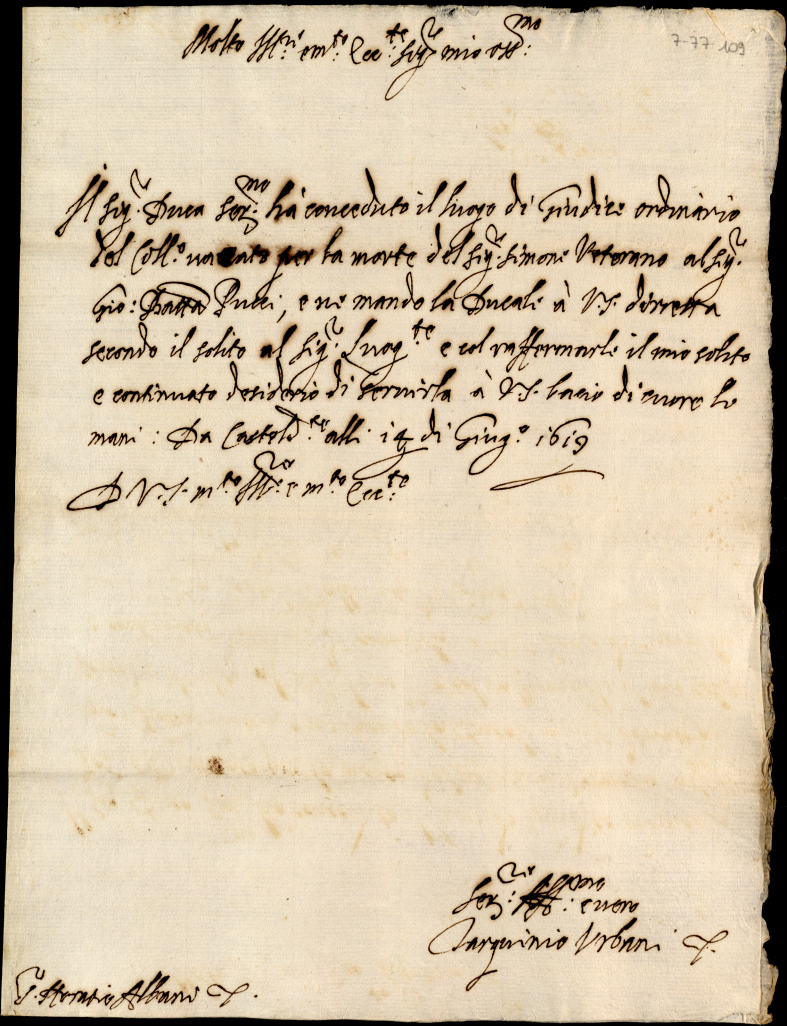 Molto Ill.re e m.to Ecc.te Sig.re mio oss.mo
7-77 109
Il Sig.r Duca Ser.mo hà conceduto il luogo di Giudice ordinario
del Coll.o vacato per la morte del Sig.r Simone Veterano al Sig.r
Gio: Batta Pucci, e ne mando la Ducale à V.S. diretta
secondo il solito al Sig.r Luog.te e col raffermarle il mio solito
e continuato desiderio di servirla à V.S. bacio di cuore le
mani: Da Casteld.te alli 14 di Giug.o 1619
D V.S. m.to Ill.re e m.to Ecc.te
Ser.re Aff.mo e vero
Tarquinio Urbani
S.r Horatio Albani